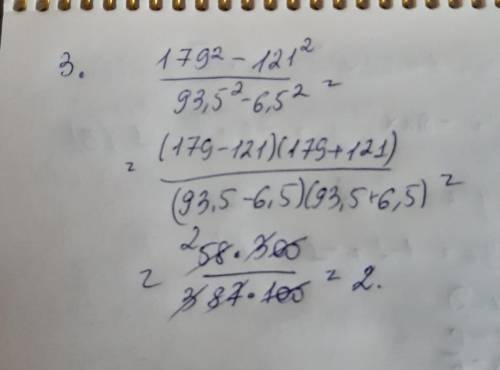 3. 179² - 121²
93,5² - 6,5² =
= (179-121)(179+121)
(93,5-6,5)(93,5+6,5) =
= ²58·300
3 87·100 = 2.